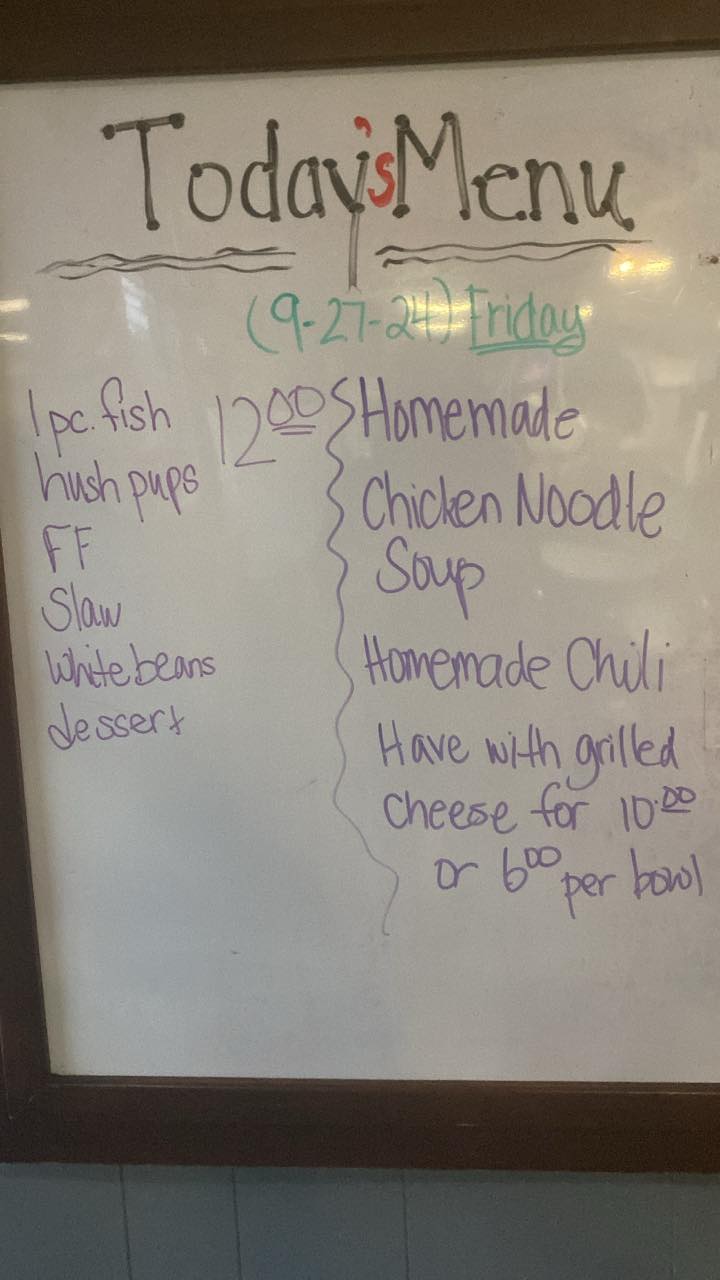 Today's Menu
(9-27-24) Friday
1 pc. fish 12.00
hush pups
FF
Slaw
white beans
dessert
Homemade
Chicken Noodle
Soup
Homemade Chili
Have with grilled
cheese for 10.00
or 6.00 per bowl